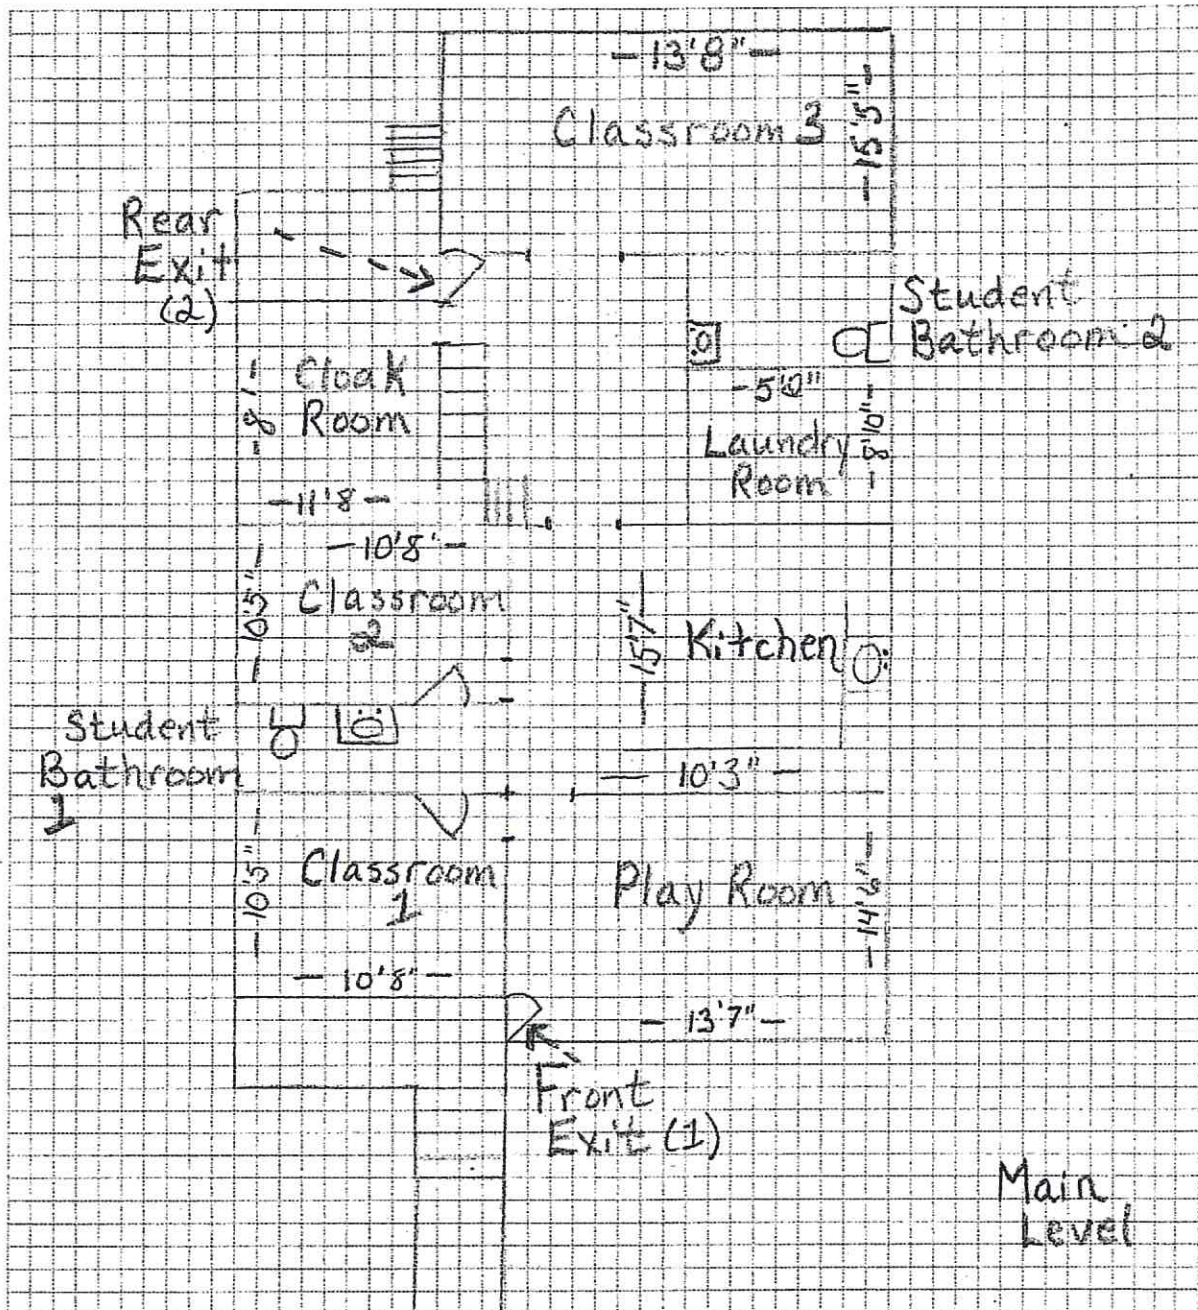 — 13'8" —
Classroom 3
— 15'5" —
Rear
Exit
(2)
Student
Bathroom 2
Cloak
Room
- 8' -
- 11'8 -
- 5'0" 
Laundry
Room
- 8'10" -
- 10'8" -
Classroom
2
- 10'5" -
- 15'7" -
Kitchen
Student
Bathroom
1
— 10'3" —
Classroom
1
- 10'5" -
- 10'8" -
Play Room
- 14'6" -
- 13'7" -
Front
Exit (1)
Main
Level